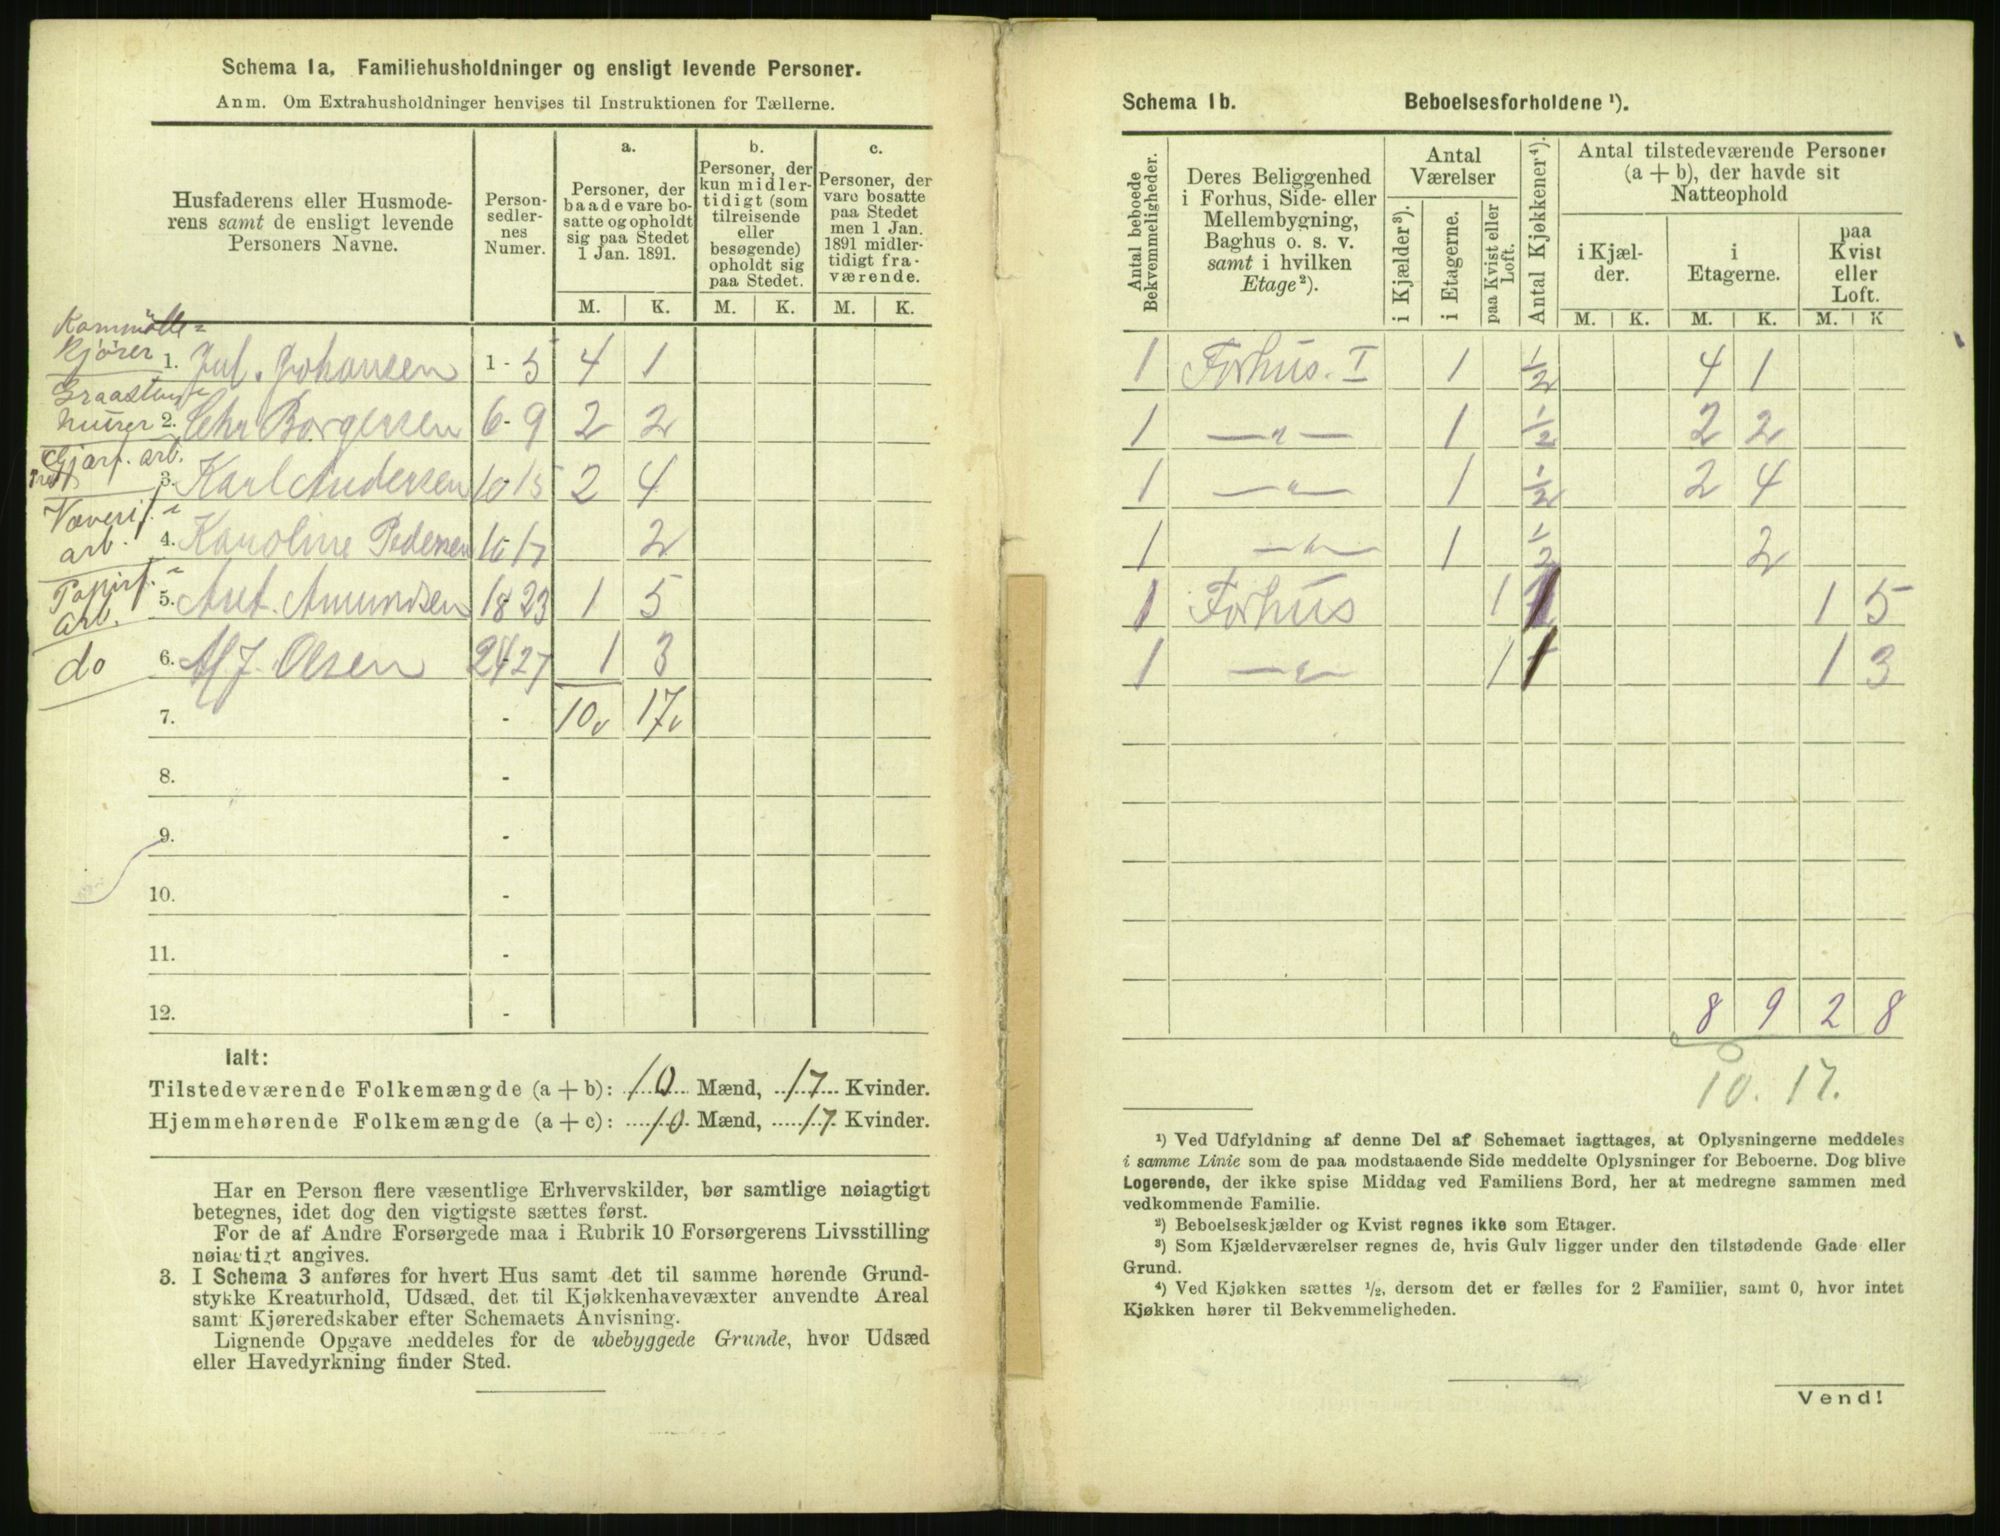 Schema 1a. Familiehusholdninger og ensligt levende Personer.
Anm. Om Extrahusholdninger henvises til Instruktionen for Tællerne.
Husfaderens eller Husmoderens samt de ensligt levende Personers Navne.
Personsedlernes Numer.
a. Personer, der baade vare bosatte og opholdt sig paa Stedet 1 Jan. 1891.
b. Personer, der kun midlertidigt (som tilreisende eller besøgende) opholdt sig paa Stedet.
c. Personer, der vare bosatte paa Stedet men 1 Jan. 1891 midlertidigt fraværende.
M. K. M. K. M. K.
Kornmølle-
kjører
1. Jul. Johansen 1-5 4 1
2. Chr Borgersen 6-9 2 2
arb.
3. Karl Andersen 10 15 2 4
Væverif.
arb.
4. Karoline Pedersen 16 17 2
Papirf.
arb.
5. Ant. Amundsen 18 23 1 5
do
6. Olsen 24-27 1 3
7. - 10 17
8. -
9. -
10. -
11. -
12. -
Ialt:
Tilstedeværende Folkemængde (a + b): 10 Mænd, 17 Kvinder.
Hjemmehørende Folkemængde (a + c): 10 Mænd, 17 Kvinder.
Har en Person flere væsentlige Erhvervskilder, bør samtlige nøiagtigt
betegnes, idet dog den vigtigste sættes først.
For de af Andre Forsørgede maa i Rubrik 10 Forsørgerens Livsstilling
nøiagtigt angives.
3. I Schema 3 anføres for hvert Hus samt det til samme hørende Grund-
stykke Kreaturhold, Udsæd, det til Kjøkkenhavevæxter anvendte Areal
samt Kjøreredskaber efter Schemaets Anvisning.
Lignende Opgave meddeles for de ubebyggede Grunde, hvor Udsæd
eller Havedyrkning finder Sted.
Schema 1b. Beboelsesforholdene ¹).
Antal beboede Bekvemmeligheder.
Deres Beliggenhed i Forhus, Side- eller Mellembygning, Baghus o. s. v. samt i hvilken Etage²).
Antal Værelser
i Kjælder³).
i Etagerne.
paa Kvist eller Loft.
Antal Kjøkkener⁴).
Antal tilstedeværende Personer (a + b), der havde sit Natteophold
i Kjælder.
i Etagerne.
paa Kvist eller Loft.
M. K. M. K. M. K
1 Forhus. I 1 ½ 4 1
1 —„— 1 ½ 2 2
1 —„— 1 ½ 2 4
1 —„— 1 ½ 2
1 Forhus 1 1 1 5
1 —„— 1 1 1 3
8 9 2 8
10. 17.
¹) Ved Udfyldning af denne Del af Schemaet iagttages, at Oplysningerne meddeles
i samme Linie som de paa modstaaende Side meddelte Oplysninger for Beboerne. Dog blive
Logerende, der ikke spise Middag ved Familiens Bord, her at medregne sammen med
vedkommende Familie.
²) Beboelseskjælder og Kvist regnes ikke som Etager.
³) Som Kjælderværelser regnes de, hvis Gulv ligger under den tilstødende Gade eller
Grund.
⁴) Ved Kjøkken sættes ½, dersom det er fælles for 2 Familier, samt 0, hvor intet
Kjøkken hører til Bekvemmeligheden.
Vend!